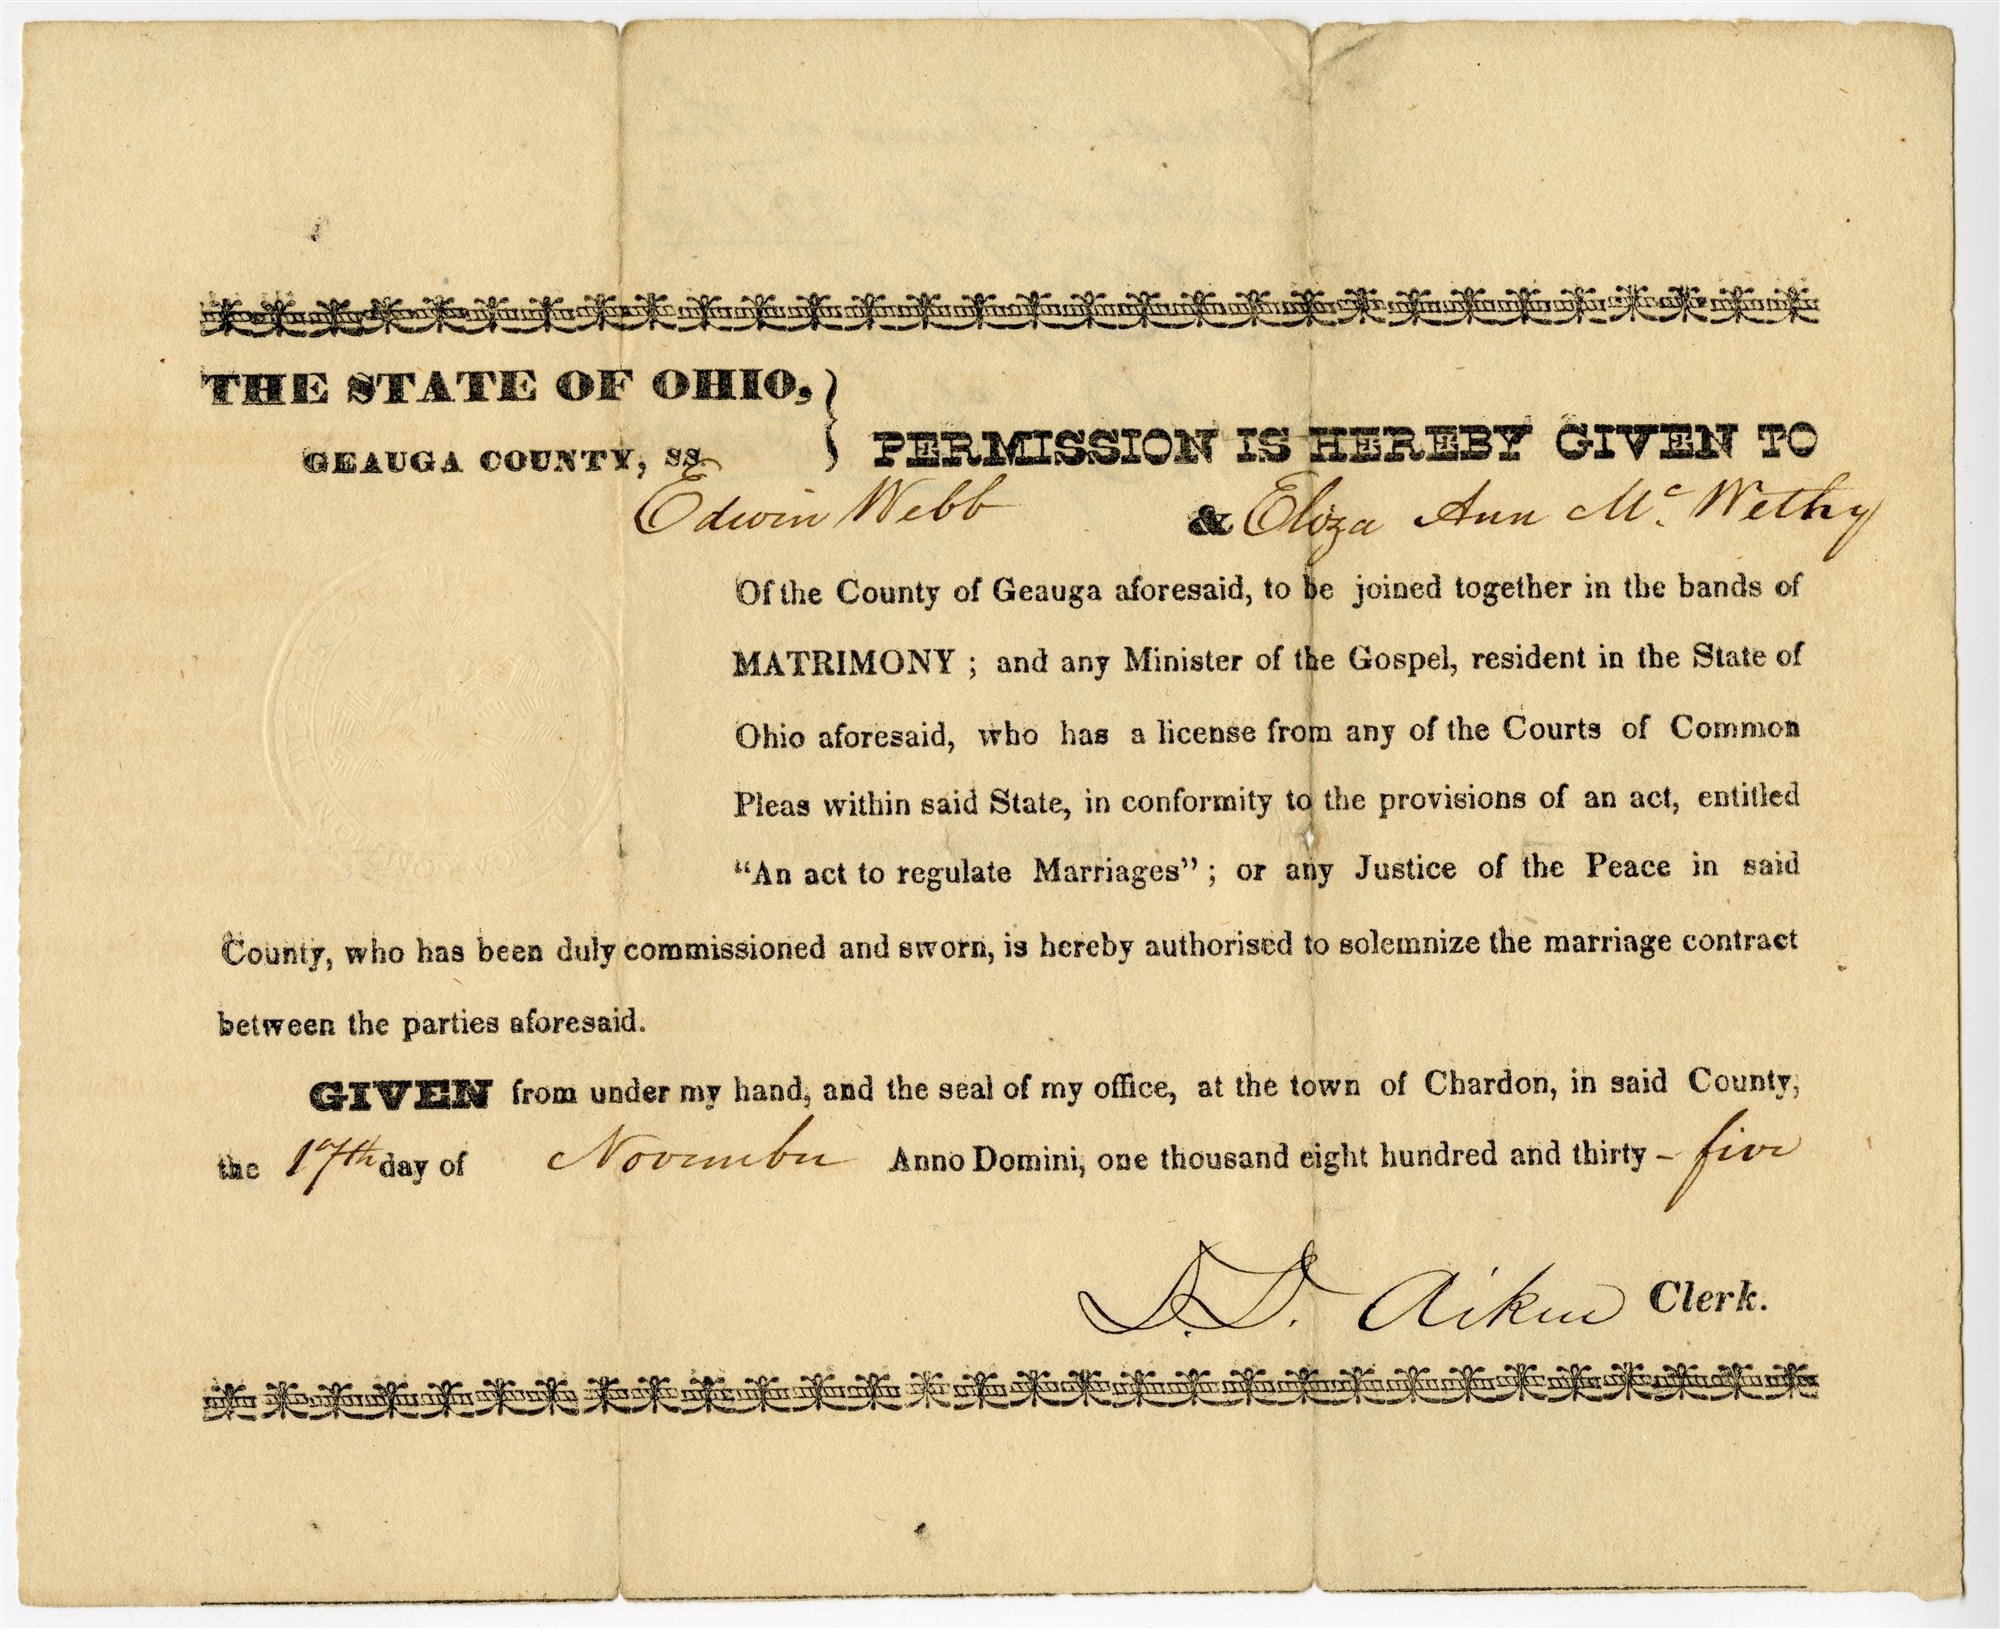 THE STATE OF OHIO,
GEAUGA COUNTY, SS.
PERMISSION IS HEREBY GIVEN TO
Edwin Webb & Eliza Ann Mc. Wethy
Of the County of Geauga aforesaid, to be joined together in the bands of
MATRIMONY ; and any Minister of the Gospel, resident in the State of
Ohio aforesaid, who has a license from any of the Courts of Common
Pleas within said State, in conformity to the provisions of an act, entitled
“An act to regulate Marriages” ; or any Justice of the Peace in said
County, who has been duly commissioned and sworn, is hereby authorised to solemnize the marriage contract
between the parties aforesaid.
GIVEN from under my hand, and the seal of my office, at the town of Chardon, in said County,
the 17th day of November Anno Domini, one thousand eight hundred and thirty - five
D. D. Aiken Clerk.